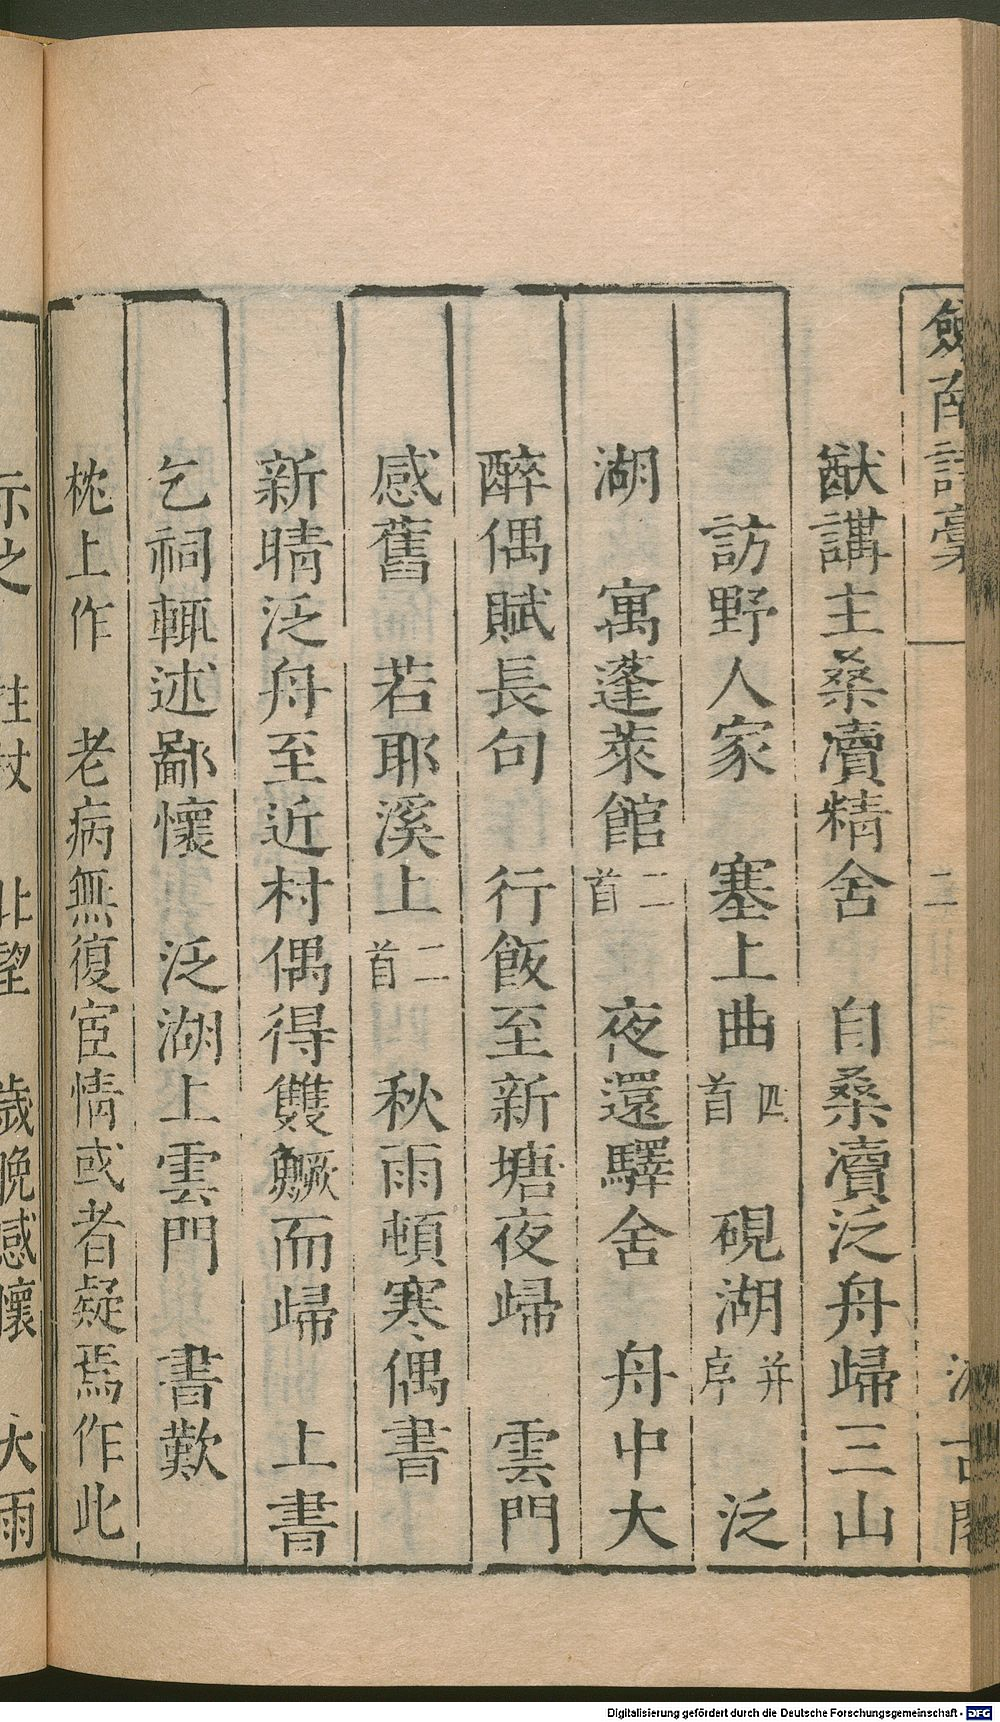 劒南詩稾
二
汲古閣
猷講主桑瀆精舍　自桑瀆泛舟歸三山
訪野人家　塞上曲四首　硯湖并序　泛
湖　寓蓬萊館二首　夜還驛舍　舟中大
醉偶賦長句　行飯至新塘夜歸　雲門
感舊　若耶溪上二首　秋雨頓寒偶書
新晴泛舟至近村偶得雙鱖而歸　上書
乞祠輒述鄙懷　泛湖上雲門　書歎
枕上作　老病無復宦情或者疑焉作此
示之　拄杖　北望　歲晚感懷　大雨
Digitalisierung gefördert durch die Deutsche Forschungsgemeinschaft - DFG